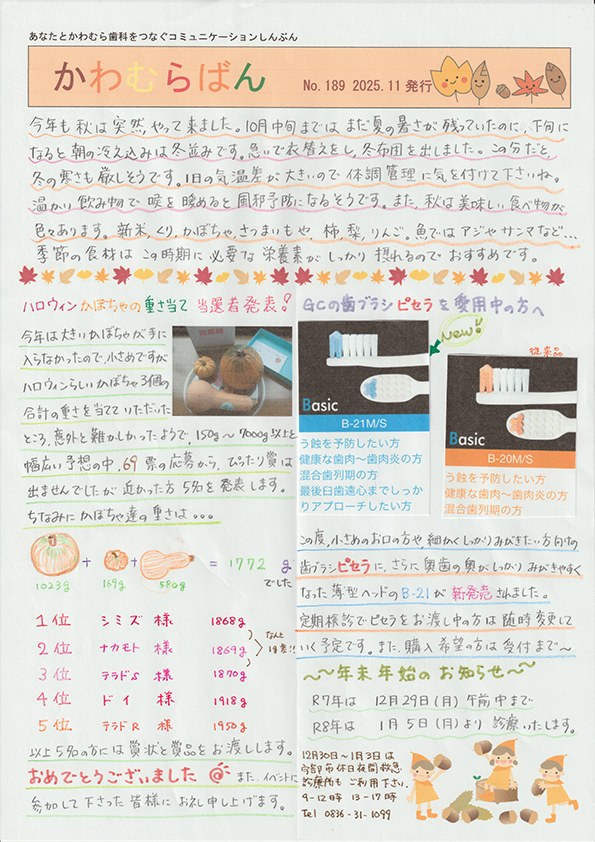 あなたとかわむら歯科をつなぐコミュニケーションしんぶん
かわむらばん
No. 189 2025.11 発行
今年も秋は突然、やって来ました。10月中旬まではまだ夏の暑さが残っていたのに、下旬に
なると朝の冷え込みは冬並みです。急いで衣替えをし、冬布団を出しました。この分だと、
冬の寒さも厳しそうです。1日の気温差が大きいので体調管理に気を付けて下さいね。
温かい飲み物で喉を暖めると風邪予防になるそうです。また、秋は美味しい食べ物が
色々あります。新米、くり、かぼちゃ、さつまいもや、柿、梨、りんご。魚ではアジやサンマなど...
季節の食材はこの時期に必要な栄養素がしっかり摂れるのでおすすめです。
ハロウィンかぼちゃの重さ当て 当選者発表!
今年は大きいかぼちゃが手に
入らなかったので、小さめですが
ハロウィンらしいかぼちゃ3個の
合計の重さを当てていただいた
ところ、意外と難かしかったようで、150g〜7000g以上と
幅広い予想の中、69票の応募から、ぴったり賞は
出ませんでしたが近かった方5名を発表します。
ちなみにかぼちゃ達の重さは...
+ + = 1772g
1023g 169g 580g でした
1位 シミズ 様 1868g
2位 ナカモト 様 1869g
なんと
1g差!!
3位 テラドS 様 1870g
4位 ドイ 様 1918g
5位 テラドR 様 1950g
以上5名の方には賞状と賞品をお渡しします。
おめでとうございました また、イベントに
参加して下さった皆様にお礼申し上げます。
GCの歯ブラシピセラを愛用中の方へ
New!!
従来品
Basic
B-21M/S
う蝕を予防したい方
健康な歯肉〜歯肉炎の方
混合歯列期の方
最後臼歯遠心までしっか
りアプローチしたい方
Basic
B-20M/S
う蝕を予防したい方
健康な歯肉〜歯肉炎の方
混合歯列期の方
この度、小さめのお口の方や、細かくしっかりみがきたい方向けの
歯ブラシピセラに、さらに奥歯の奥がしっかりみがきやすく
なった薄型ヘッドのB-21が新発売されました。
定期検診でピセラをお渡し中の方は随時変更して
いく予定です。また、購入希望の方は受付まで〜
〜年末年始のお知らせ〜
R7年は 12月29日(月)午前中まで
R8年は 1月5日(月)より診療いたします。
12月30日〜1月3日は
宇部市休日夜間救急
診療所もご利用下さい。
9-12時 13-17時
Tel 0836-31-1099